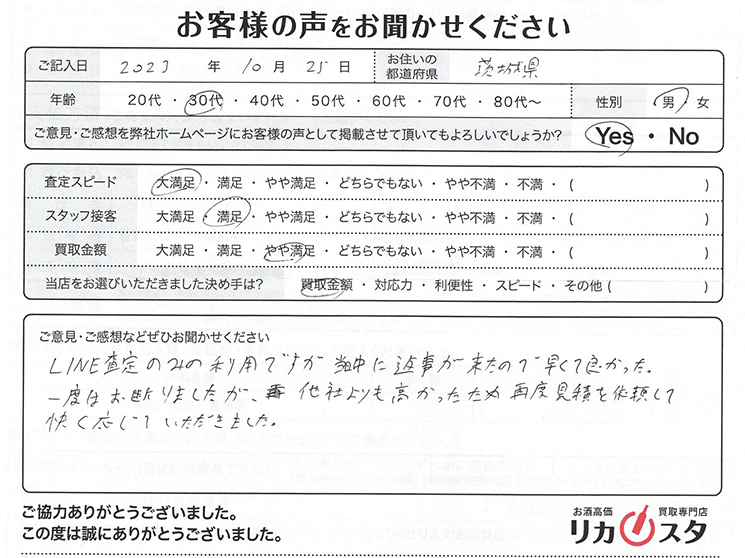 お客様の声をお聞かせください
ご記入日 2023 年 10 月 25 日 お住いの都道府県 茨城県
年齢 20代・30代・40代・50代・60代・70代・80代〜 性別 男・女
ご意見・ご感想を弊社ホームページにお客様の声として掲載させて頂いてもよろしいでしょうか? Yes・No
査定スピード 大満足・満足・やや満足・どちらでもない・やや不満・不満・( )
スタッフ接客 大満足・満足・やや満足・どちらでもない・やや不満・不満・( )
買取金額 大満足・満足・やや満足・どちらでもない・やや不満・不満・( )
当店をお選びいただきました決め手は? 買取金額・対応力・利便性・スピード・その他( )
ご意見・ご感想などぜひお聞かせください
LINE査定のみの利用ですが当日中に返事が来たので早くて良かった。
一度はお断りしましたが、他社よりも高かったため再度見積を依頼して
快く応じていただきました。
ご協力ありがとうございました。
この度は誠にありがとうございました。
お酒高価 買取専門店
リカスタ